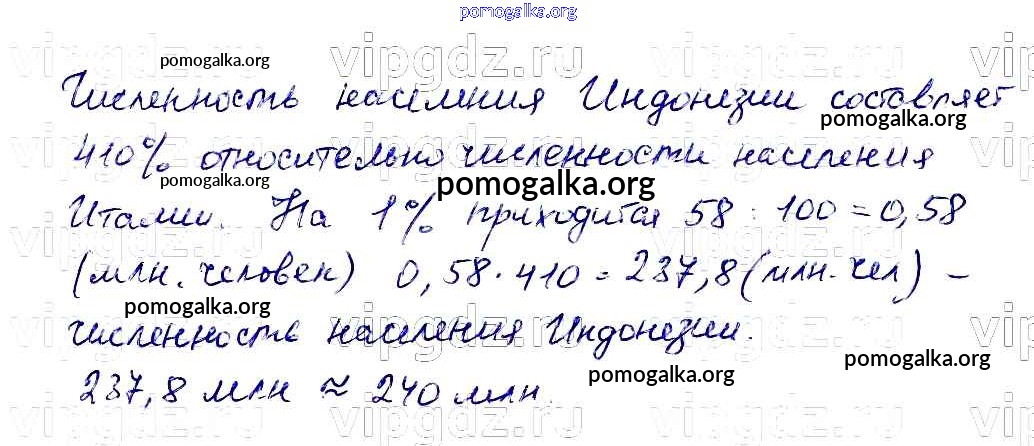 pomogalka.org
vipgdz.ru vipgdz.ru vipgdz.ru
pomogalka.org
Численность населения Индонезии составляет
pomogalka.org
410% относительно численности населения
pomogalka.org
pomogalka.org
Италии. На 1% приходится 58 : 100 = 0,58
(млн. человек) 0,58 · 410 = 237,8 (млн. чел) –
pomogalka.org
pomogalka.org
численность населения Индонезии.
pomogalka.org
pomogalka.org
237,8 млн ≈ 240 млн.